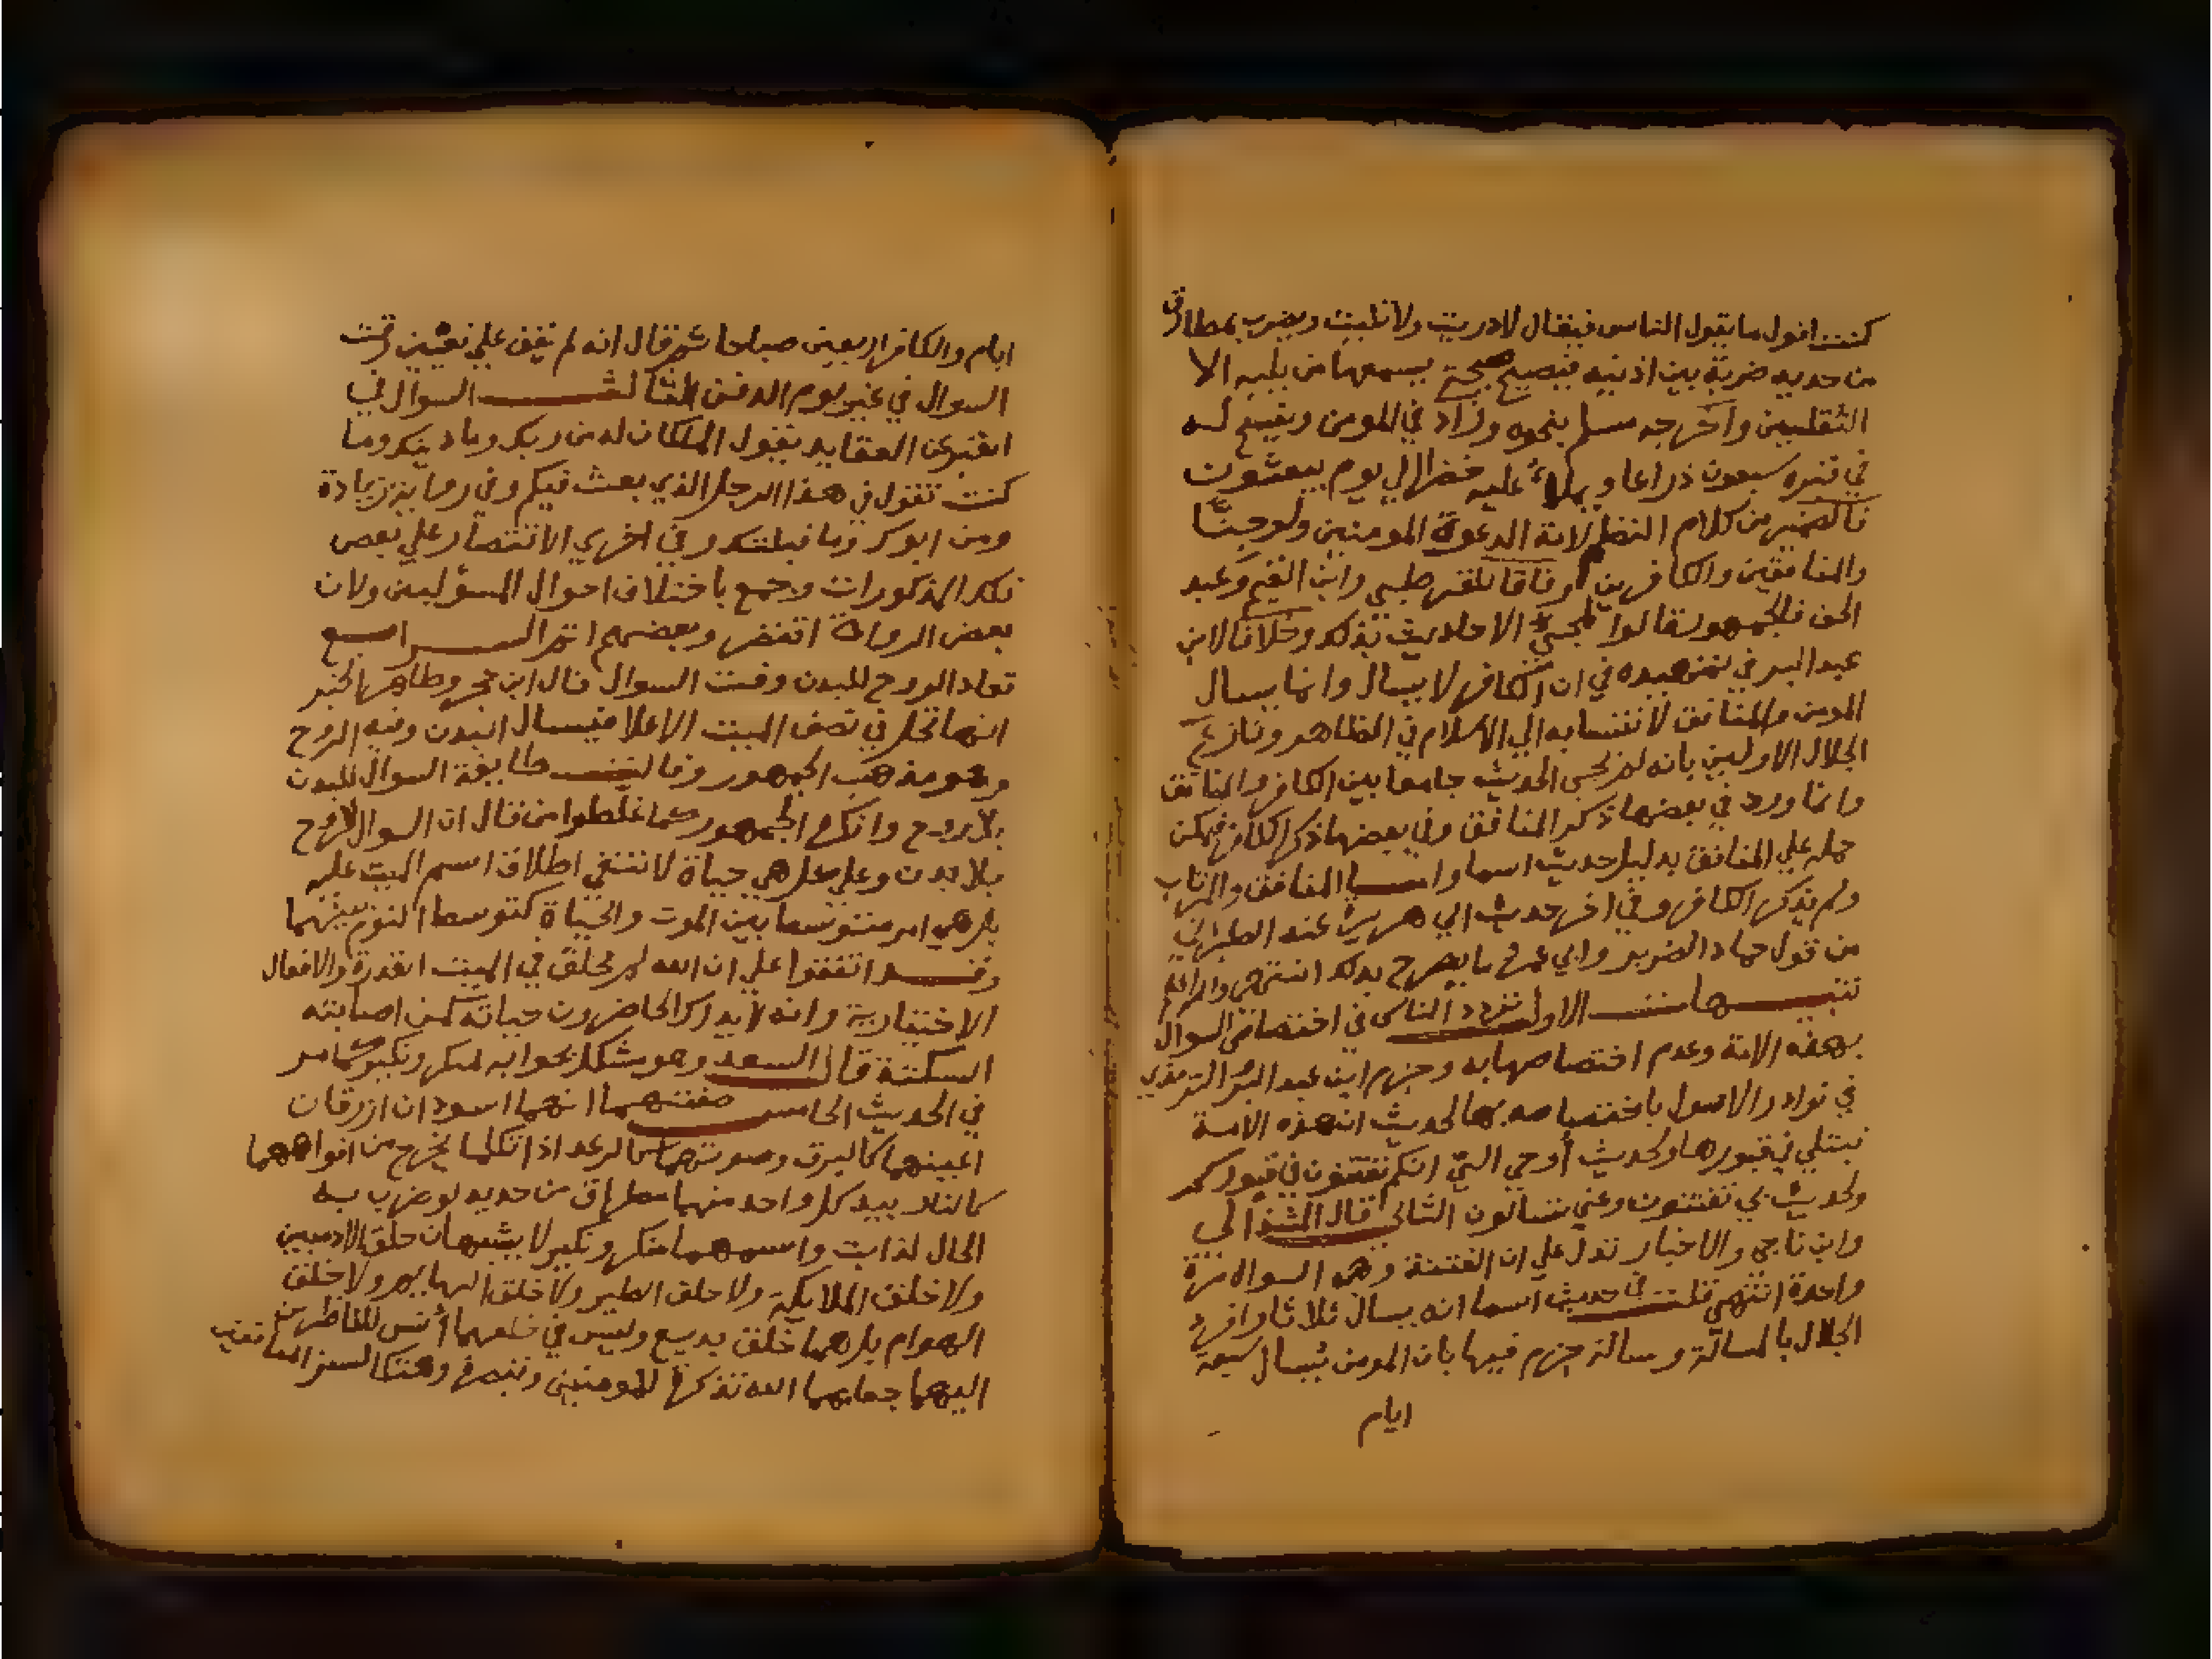 كنت اقول ما يقول الناس فيقال لا دريت ولا تليت ويضرب بمطارق
من حديد ضربة بين اذنيه فيصيح صيحة يسمعها من يليه الا
الثقلين واخرجه مسلم بنحوه وزاد في المومن ويفسح له
في قبره سبعون ذراعا ويملاء عليه خضرا الي يوم يبعثون
فالضمير من كلام النظم لامة الدعوة المومنين ولو جنّا
والمنافقين والكافرين وفاقا للقرطبي وابن القيم وعبد
الحق فالجمهور قالوا لمجيئ الاحاديث بذلك وخلافا لابن
عبد البر في تمهيده في ان الكافر لا يسال وانما يسال
المومن والمنافق لانتسابه الي الاسلام في الظاهر ونازع
الجلال الاولين بانه لم يجي الحديث جامعا بين الكافر والمنافق
وانما ورد في بعضها ذكر المنافق وفي بعضها ذكر الكافر فيمكن
حمله علي المنافق بدليل حديث اسما واما المنافق والمرتاب
ولم يذكر الكافر وفي اخر حديث ابي هريرة عند الطبراني
من قول حماد الضرير وابي عمر ما يصرح بذلك انتهي
تنبيهات الاول تردد الناس في اختصاص السوال
بهذه الامة وعدم اختصاصها به وجزم ابن عبد البر الترمذي
في نوادر الاصول باختصاصه بها لحديث ان هذه الامة
تبتلي في قبورها ولحديث أوحي اليّ انكم تفتنون في قبوركم
ولحديث بي تفتنون وعني تسالون الثاني قال الشذالي
وابن ناجي والاخبار تدل علي ان الفتنة وهي السوال مرّة
واحدة انتهي قلت في حديث اسما انه يسال ثلاثا وافرد
الجلال بالمسالة رسالة جزم فيها بان المومن يسال سبعة
ايام
ايام والكافر اربعين صباحا ثم قال انه لم يقف علي تعيين وقت
السوال في غير يوم الدفن الثالث السوال في
القبر عن العقايد يقول الملكان له من ربك وما دينك وما
كنت تقول في هذا الرجل الذي بعث فيكم وفي رواية زيادة
ومن ابوك وما قبلتك وفي اخري الاقتصار علي بعض
تلك المذكورات وجمع باختلاف احوال المسؤلين ولان
بعض الرواة اقتصر وبعضهم اتم الرابع
تعاد الروح للبدن وقت السوال قال ابن حجر وظاهر الخبر
انها تحل في نصف الميت الاعلا فيسال البدن وفيه الروح
وهو مذهب الجمهور وقالت طايفة السوال للبدن
بلا روح وانكره الجمهور كما غلطوا من قال ان السوال للروح
بلا بدن وعلي كل هي حياة لا تنفي اطلاق اسم الميت عليه
بل هي امر متوسط بين الموت والحياة كتوسط النوم بينهما
وقد اتفقوا علي ان الله لم يخلق في الميت القدرة والافعال
الاختيارية وانه لا يدرك الحاضرون حياته كمن اصابته
السكتة قال السعد وهو مشكل بجوابه لمنكر ونكير كما مر
في الحديث الخامس صفتهما انهما اسودان ازرقان
اعينهما كالبرق وصوتهما كالرعد اذا تكلما يخرج من افواههما
كالنار بيد كل واحد منهما مطراق من حديد لو ضرب به
الجبال لذابت واسمهما منكر ونكير لا يشبهان خلق الادميين
ولا خلق الملايكة ولا خلق الطير ولا خلق البهايم ولا خلق
الهوام بل هما خلق بديع وليس في خلقهما أنس للناظرين
اليهما جعلهما الله تذكرة للمومنين وتبصرة وهتكا لستر المنافقين